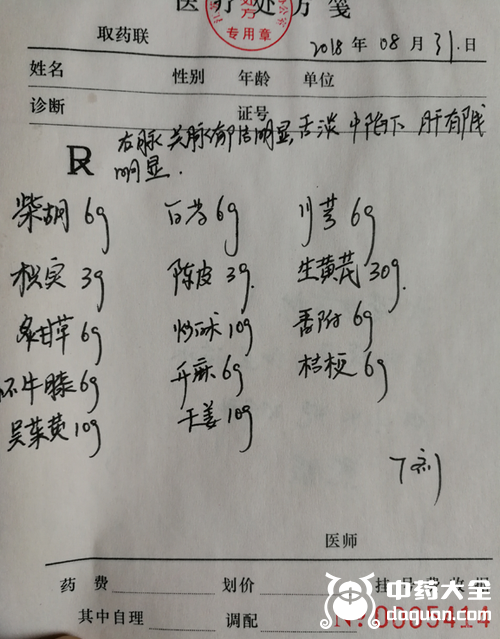 医疗处方笺
处方
专用章
取药联 2018年08月31日
姓名 性别 年龄 单位
诊断 证号
右脉关脉郁结明显,舌淡 中陷下 肝有线
R 明显.
柴胡 6g 白芍 6g 川芎 6g
枳实 3g 陈皮 3g. 生黄芪 30g.
炙甘草 6g 炒白术 10g 香附 6g
怀牛膝 6g 升麻 6g 桔梗 6g
吴茱萸 10g 干姜 10g
7剂
医师
药费 划价
其中自理 调配 No.0005414
中药大全
daquan.com